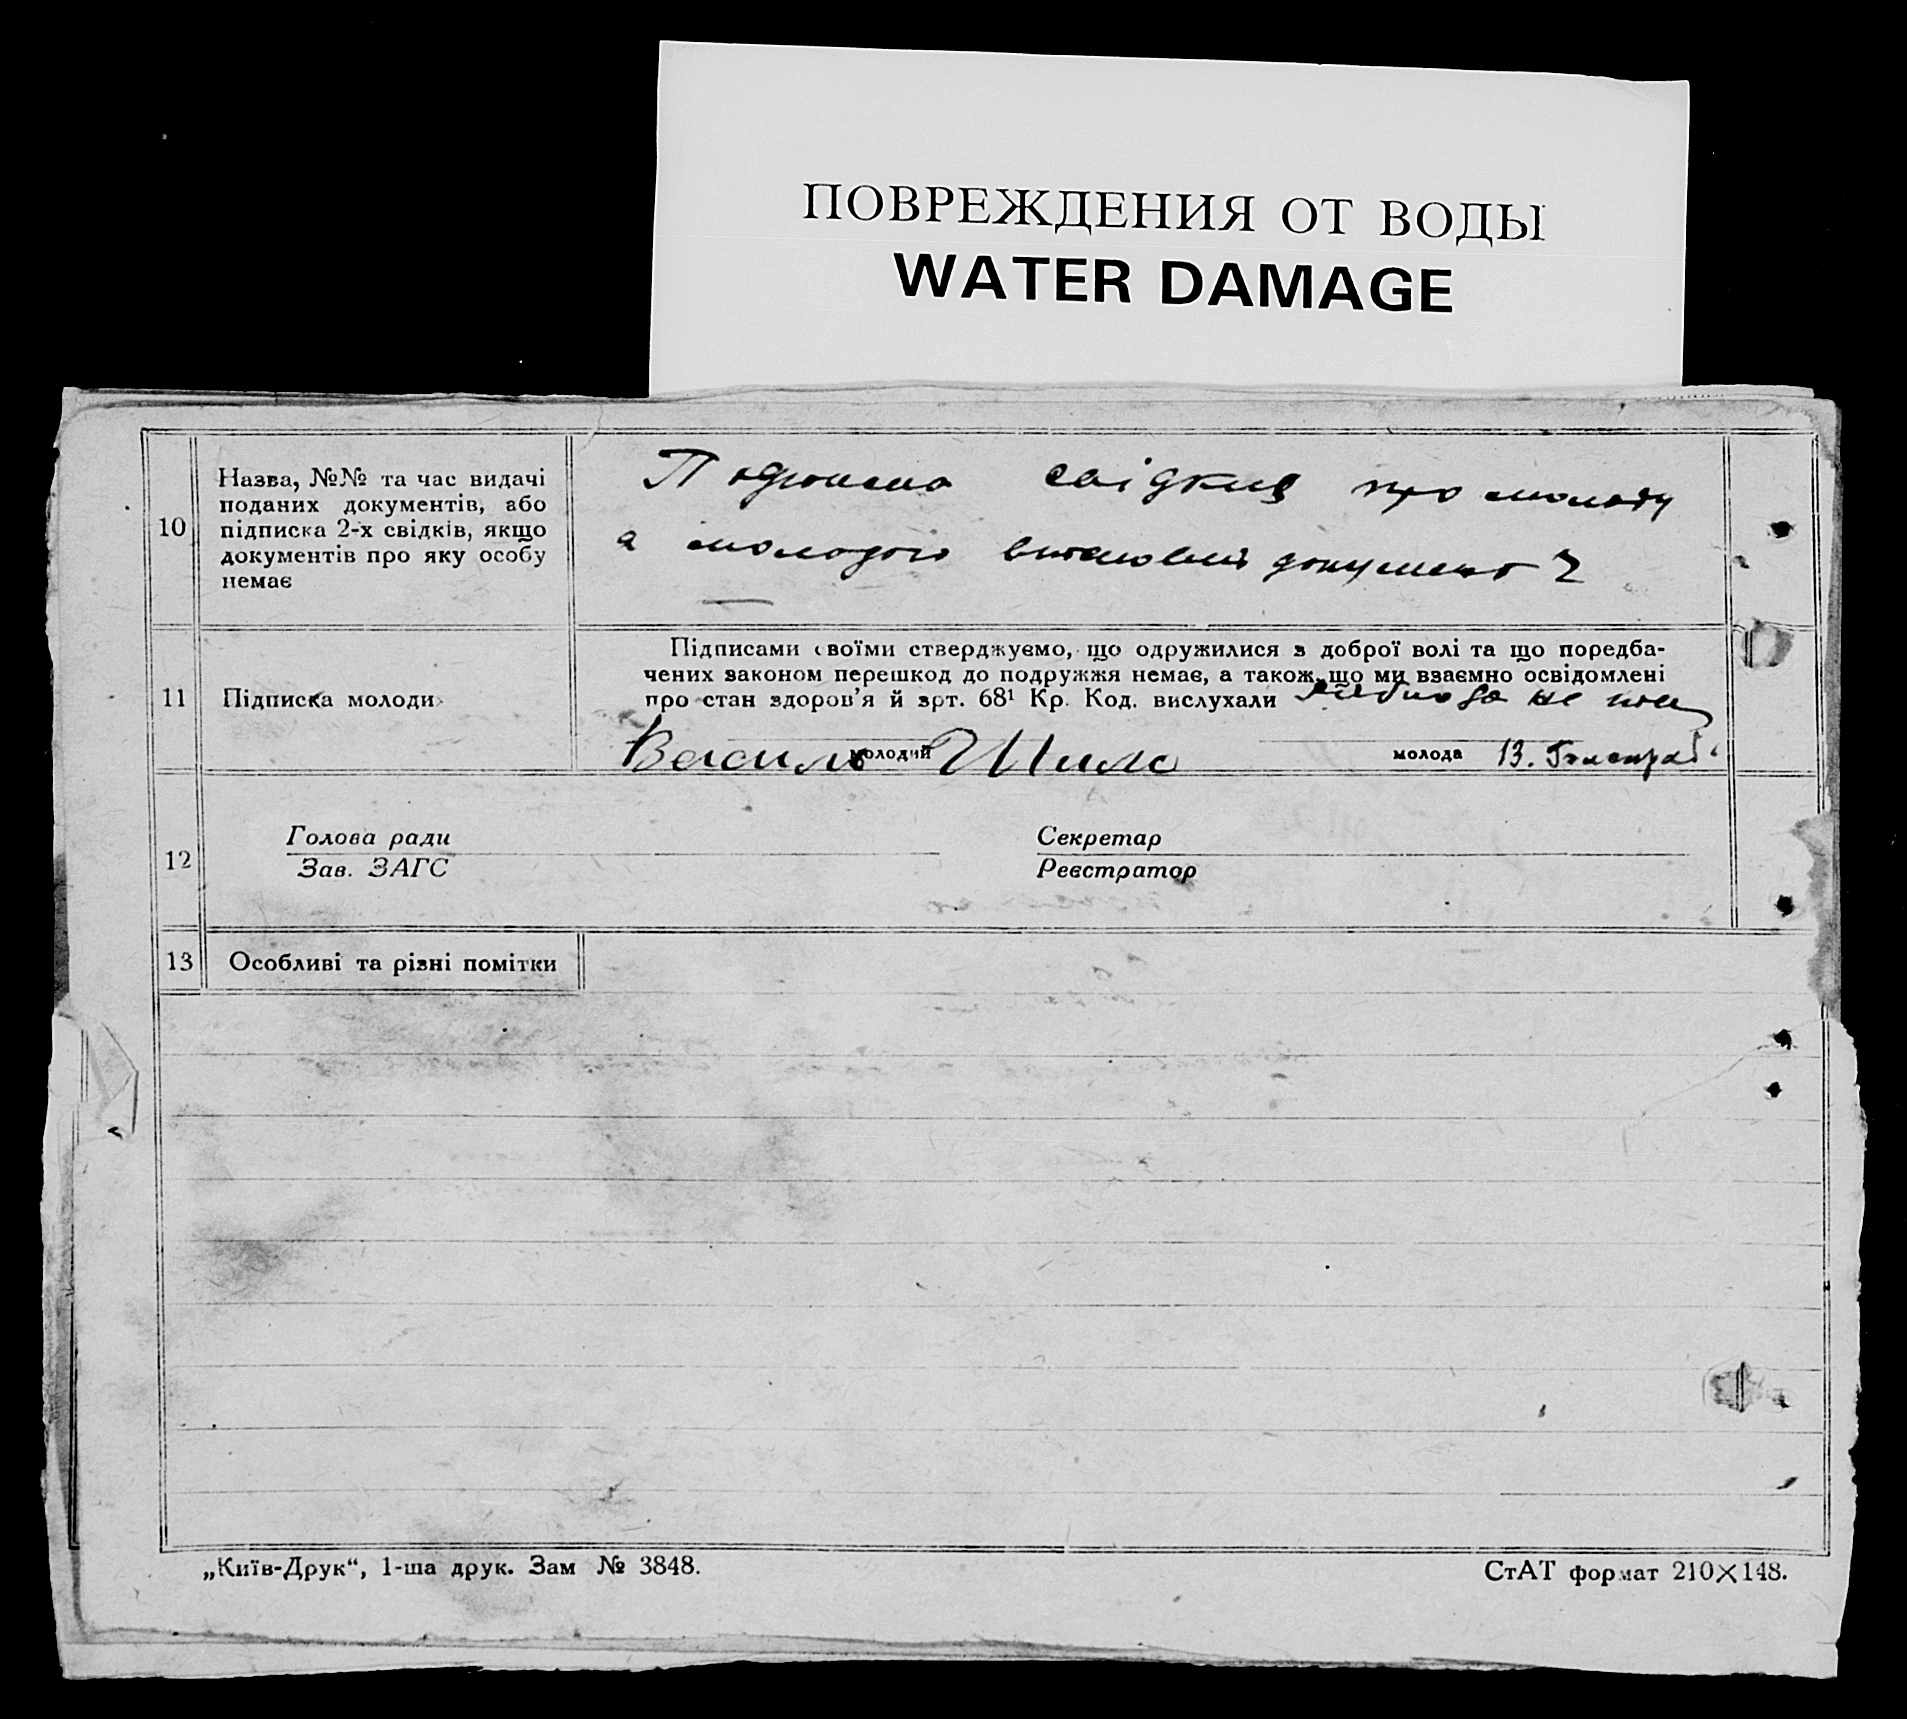 ПОВРЕЖДЕНИЯ ОТ ВОДЫ
WATER DAMAGE
10
Назва, №№ та час видачі
поданих документів, або
підписка 2-х свідків, якщо
документів про яку особу
немає
свідків про молоду
а молодого документ
11
Підписка молоди
Підписами своїми стверджуємо, що одружилися з доброї волі та що поредба-
чених законом перешкод до подружжя немає, а також що ми взаємно освідомлені
про стан здоров'я й арт. 68¹ Кр. Код. вислухали не
Василь молодий Шило молода
12
Голова ради Секретар
Зав. ЗАГС Реєстратор
13
Особливі та різні помітки
„Київ-Друк“, 1-ша друк. Зам № 3848. СтАТ формат 210×148.